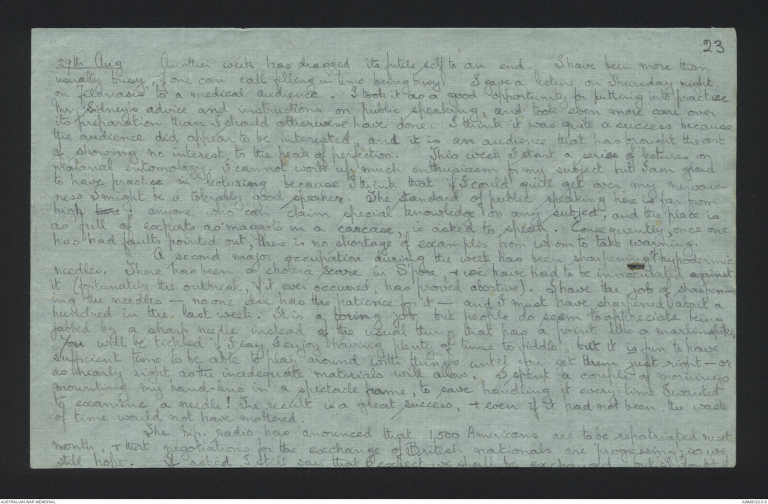 23
29th Aug Another week has dragged its futile self to an end. I have been more than
usually busy, if one can call filling in time being busy! I gave a lecture on Thursday night,
on filariasis to a medical audience. I took it as a good opportunity for putting into practice
Mr. Sidney's advice and instructions on public speaking, and took even more care over
its preparation than I should otherwise have done. I think it was quite a success because
the audience did appear to be interested and it is an audience that has brought the art
of showing no interest to the peak of perfection. This week I start a series of lectures on
malarial entomology. I cannot work up much enthusiasm for my subject but I am glad
to have practice in lecturing because I think that if I could quite get over my nervous-
ness I might be a tolerably good speaker. The standard of public speaking here is far from
high; anyone who can claim special knowledge on any subject, and the place is
as full of experts as maggots in a carcase, is asked to speak. Consequently, once one
has had faults pointed out, there is no shortage of examples from whom to take warning.
A second major occupation during the week has been sharpening hypodermic
needles. There has been a cholera scare in S'pore, & we have had to be innoculated against
it (fortunately the outbreak, if it ever occurred, has proved abortive). I have the job of sharpen-
ing the needles — no one else has the patience for it — and I must have sharpened about a
hundred in the last week. It is a boring job but people do seem to appreciate being
jabbed by a sharp needle instead of the usual thing that has a point like a marlinspike.
You will be tickled if I say I enjoy having plenty of time to fiddle; but it is fun to have
sufficient time to be able to play around with things until you get them just right — or
as nearly right as the inadequate materials will allow. I spent a couple of mornings
mounting my hand-lens in a spectacle frame, to save handling it every time I wanted
to examine a needle! The result is a great success, & even if it had not been the waste
of time would not have mattered.
The Nip. radio has anounced that 1,500 Americans are to be repatriated next
month, & that negotiations for the exchange of British nationals are progressing; so we
still hope. If asked, I still say that I expect we shall be exchanged but I doubt
AUSTRALIAN WAR MEMORIAL